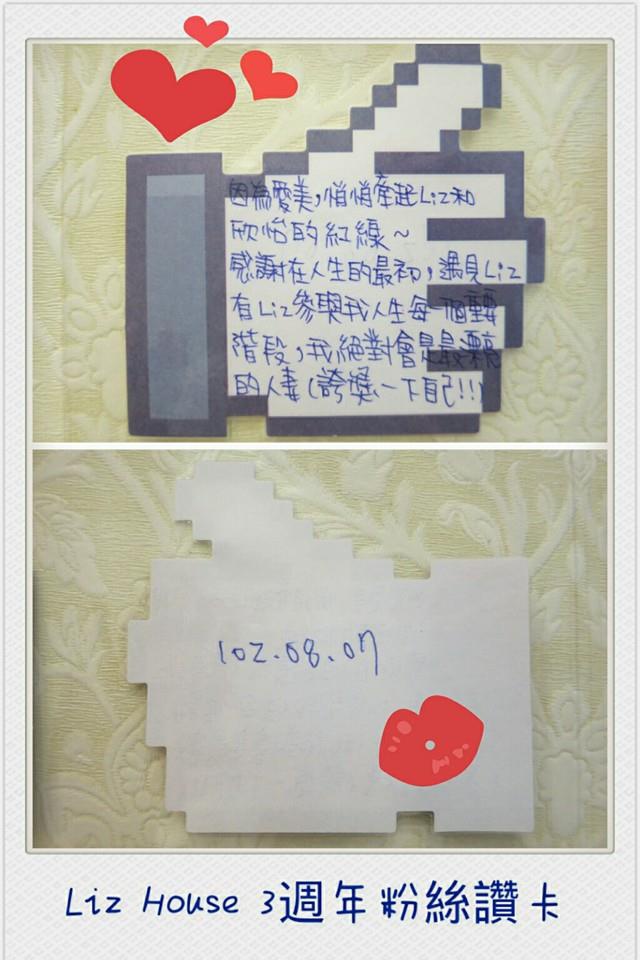 因為愛美,悄悄牽起Liz和
欣怡的紅線~
感謝在人生的最初,遇見Liz
有Liz參與我人生每一個重要
階段,我絕對會是最漂亮
的人妻(誇獎一下自己!!)
102.08.07
Liz House 3週年粉絲讚卡